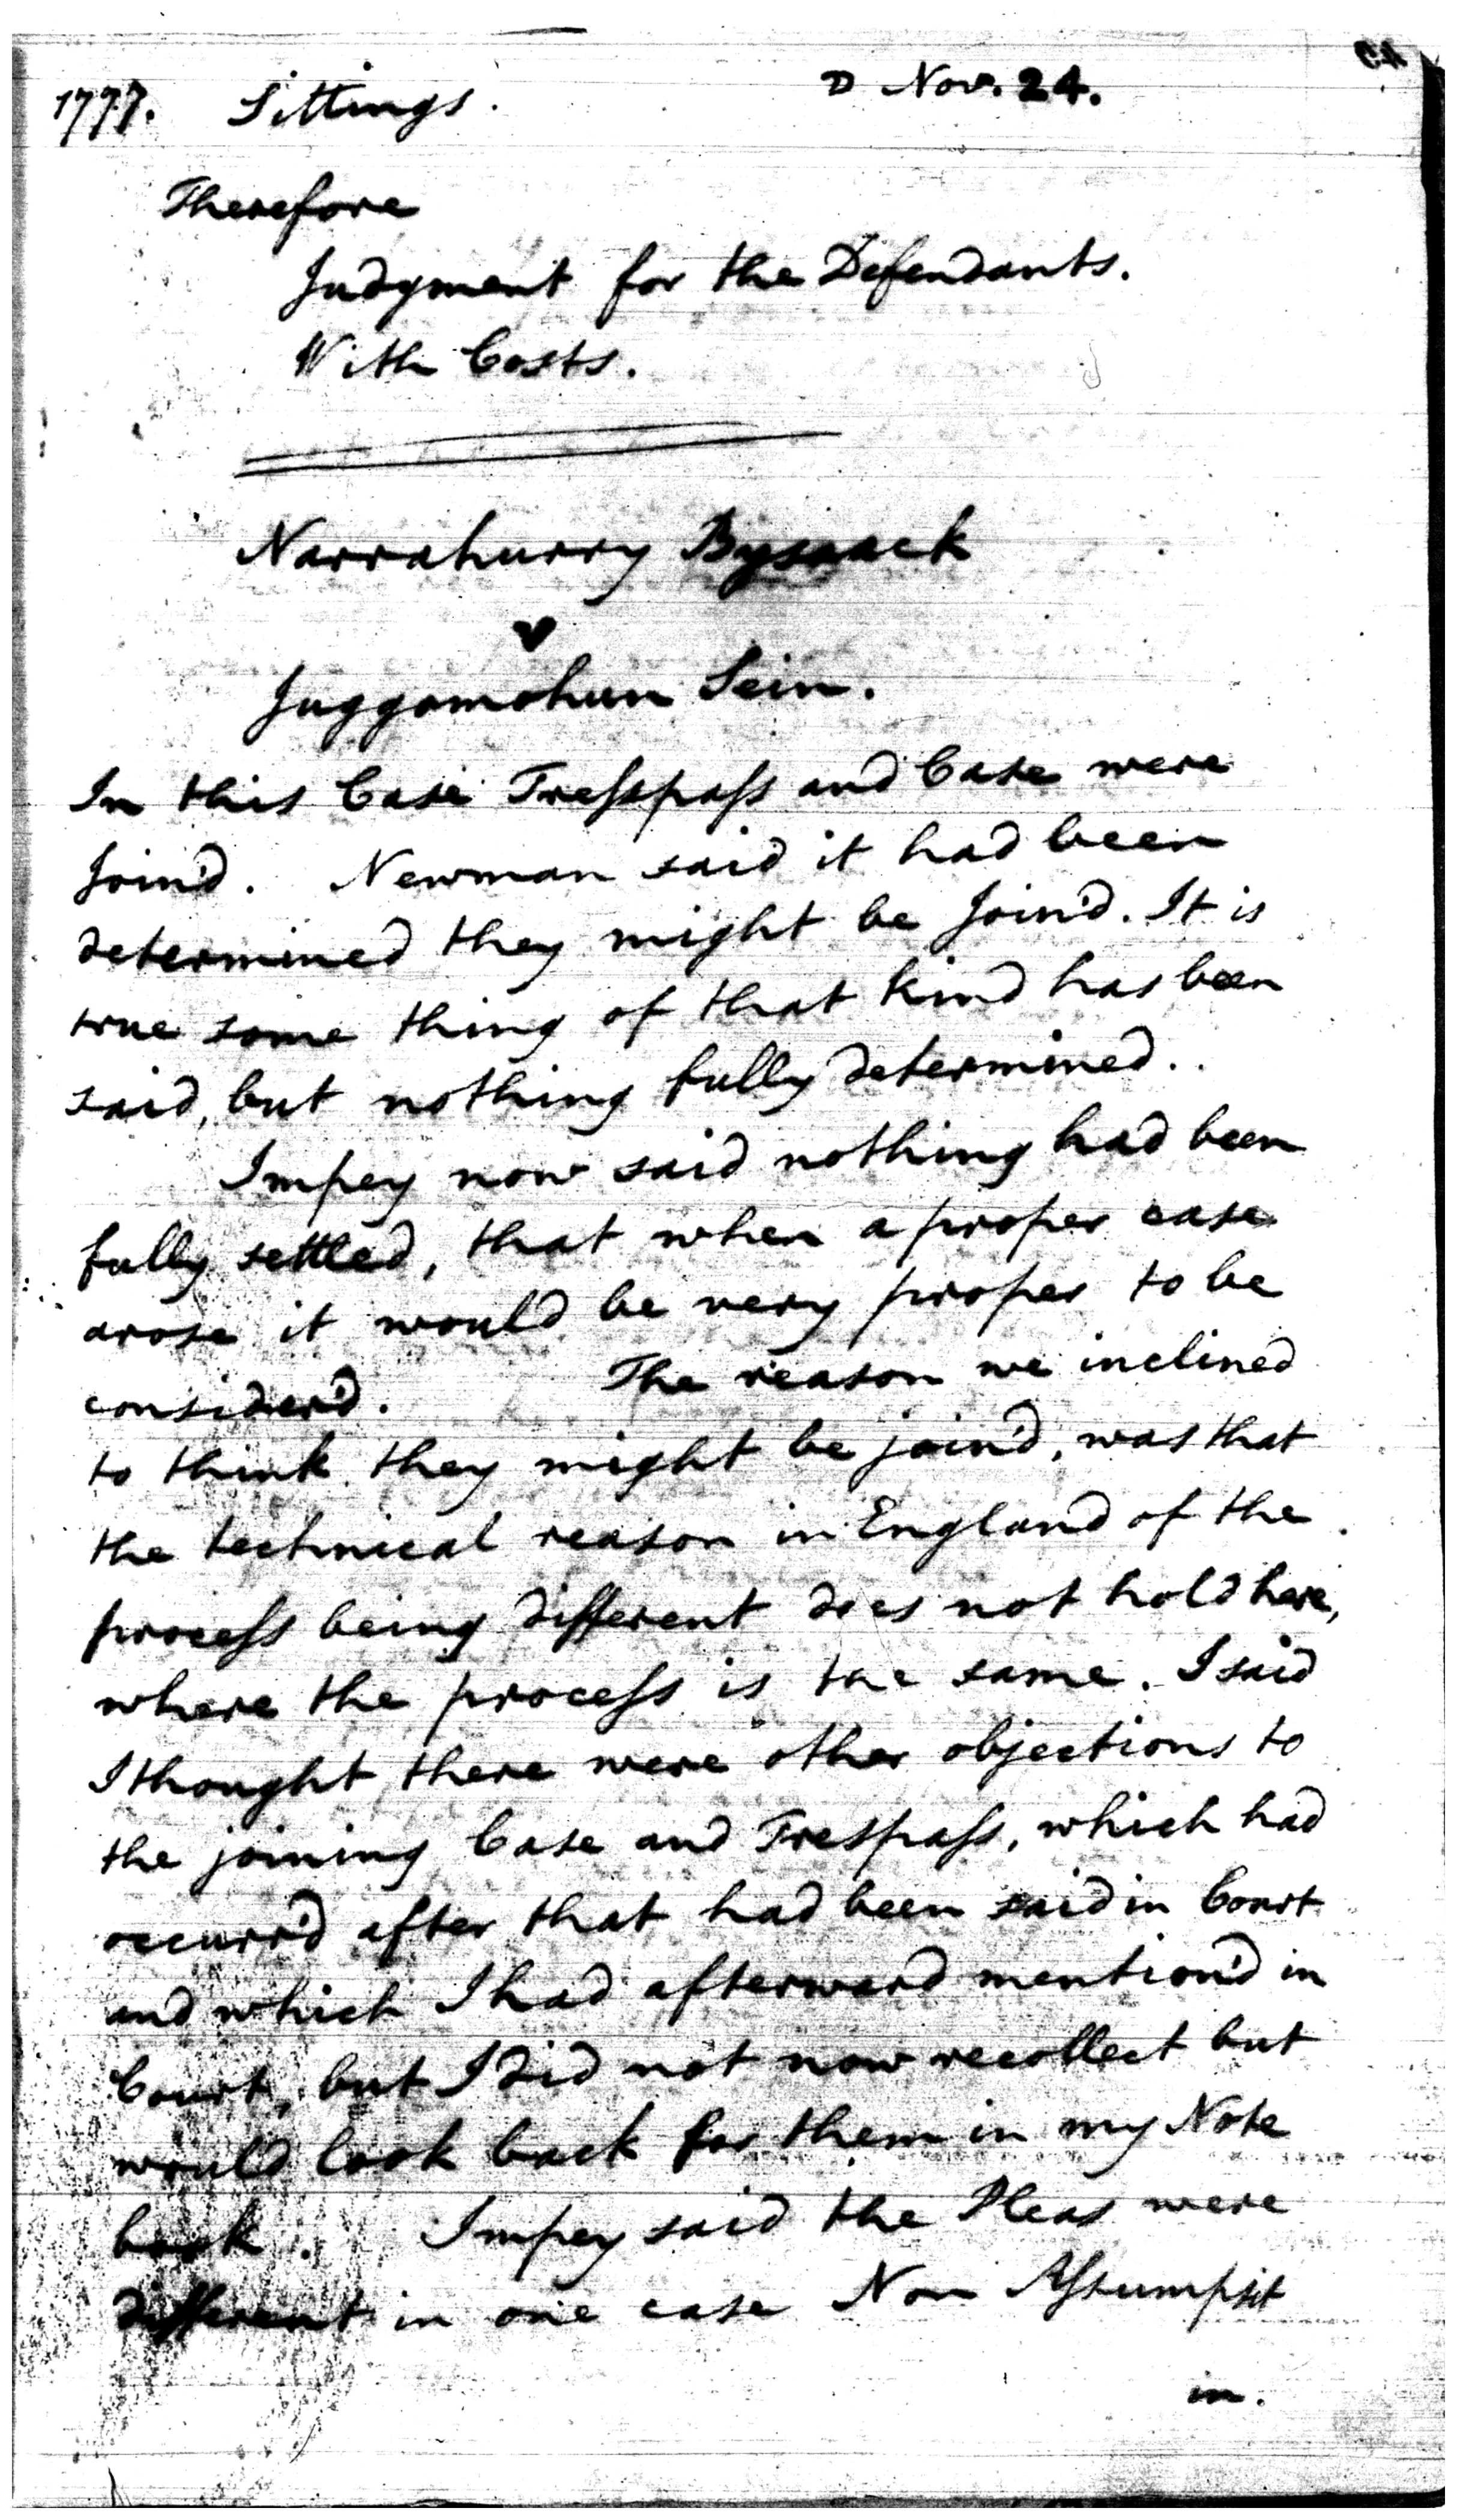 1777. Sittings. D Nov. 24.
Therefore
Judgment for the Defendants.
With Costs.
Narrahurry Bysaack
v
Juggomohun Sein.
In this Case Tresspass and Case were
Join'd. Newman said it had been
determined they might be Join'd. It is
true some thing of that kind has been
said, but nothing fully determined.
Impey now said nothing had been
fully settled, that when a proper case
arose it would be very proper to be
consider'd. The reason we inclined
to think they might be join'd, was that
the technical reason in England of the
process being different does not hold here,
where the process is the same. I said
I thought there were other objections to
the joining Case and Trespass, which had
occurr'd after that had been said in Court
and which I had afterward mention'd in
Court, but I did not now recollect but
would look back for them in my Note
book. Impey said the Pleas were
different in one case Non Assumpsit
in.